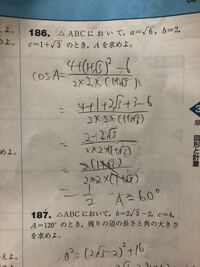 186. △ABCにおいて，a=√6，b=2，
c=1+√3 のとき，Aを求めよ。
cosA = (4+(1+√3)²-6)/(2×2×(1+√3))
= (4+1+2√3+3-6)/(2×2×(1+√3))
= /(2×2×(1+√3))
= /(2×2×(1+√3))
= 1/2 A=60°
187. △ABCにおいて，b=2√3-2，c=4，
A=120°のとき，残りの辺の長さと角の大きさ
を求めよ。
a²=(2√3-2)²+16
図形と計量